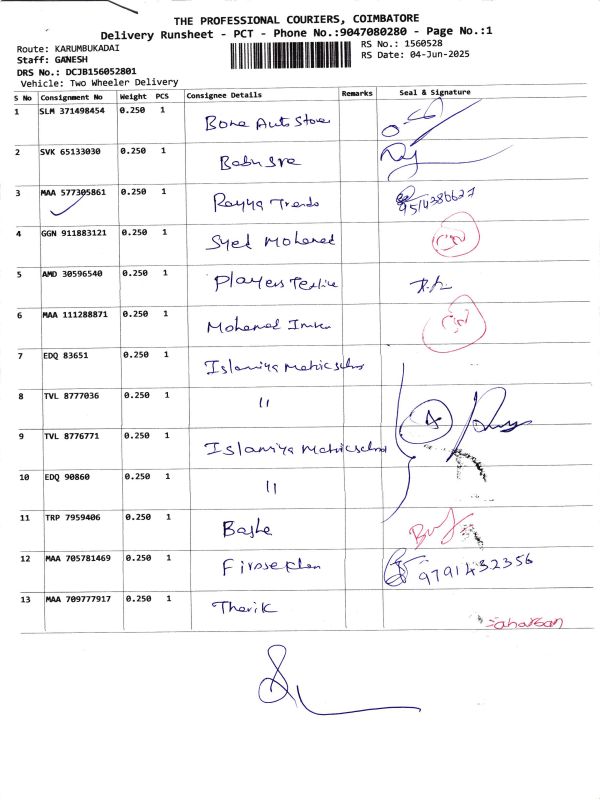 THE PROFESSIONAL COURIERS, COIMBATORE
Delivery Runsheet - PCT - Phone No.:9047080280 - Page No.:1
Route: KARUMBUKADAI
RS No.: 1560528
Staff: GANESH
RS Date: 04-Jun-2025
DRS No.: DCJB156052801
Vehicle: Two Wheeler Delivery
S No Consignment No Weight PCS Consignee Details Remarks Seal & Signature
1 SLM 371498454 0.250 1 Bone Auto Store
2 SVK 65133030 0.250 1 Babu
3 MAA 577305861 0.250 1 Rayya Trends 9514386627
4 GGN 911883121 0.250 1 Syed Mohamed
5 AMD 30596540 0.250 1 Players Textile
6 MAA 111288871 0.250 1 Mohamed Imran
7 EDQ 83651 0.250 1 Islamiya Matric School
8 TVL 8777036 0.250 1 "
9 TVL 8776771 0.250 1 Islamiya Matric School
10 EDQ 90860 0.250 1 "
11 TRP 7959406 0.250 1 Basha
12 MAA 705781469 0.250 1 Firose Khan 9791432356
13 MAA 709777917 0.250 1 Tharik